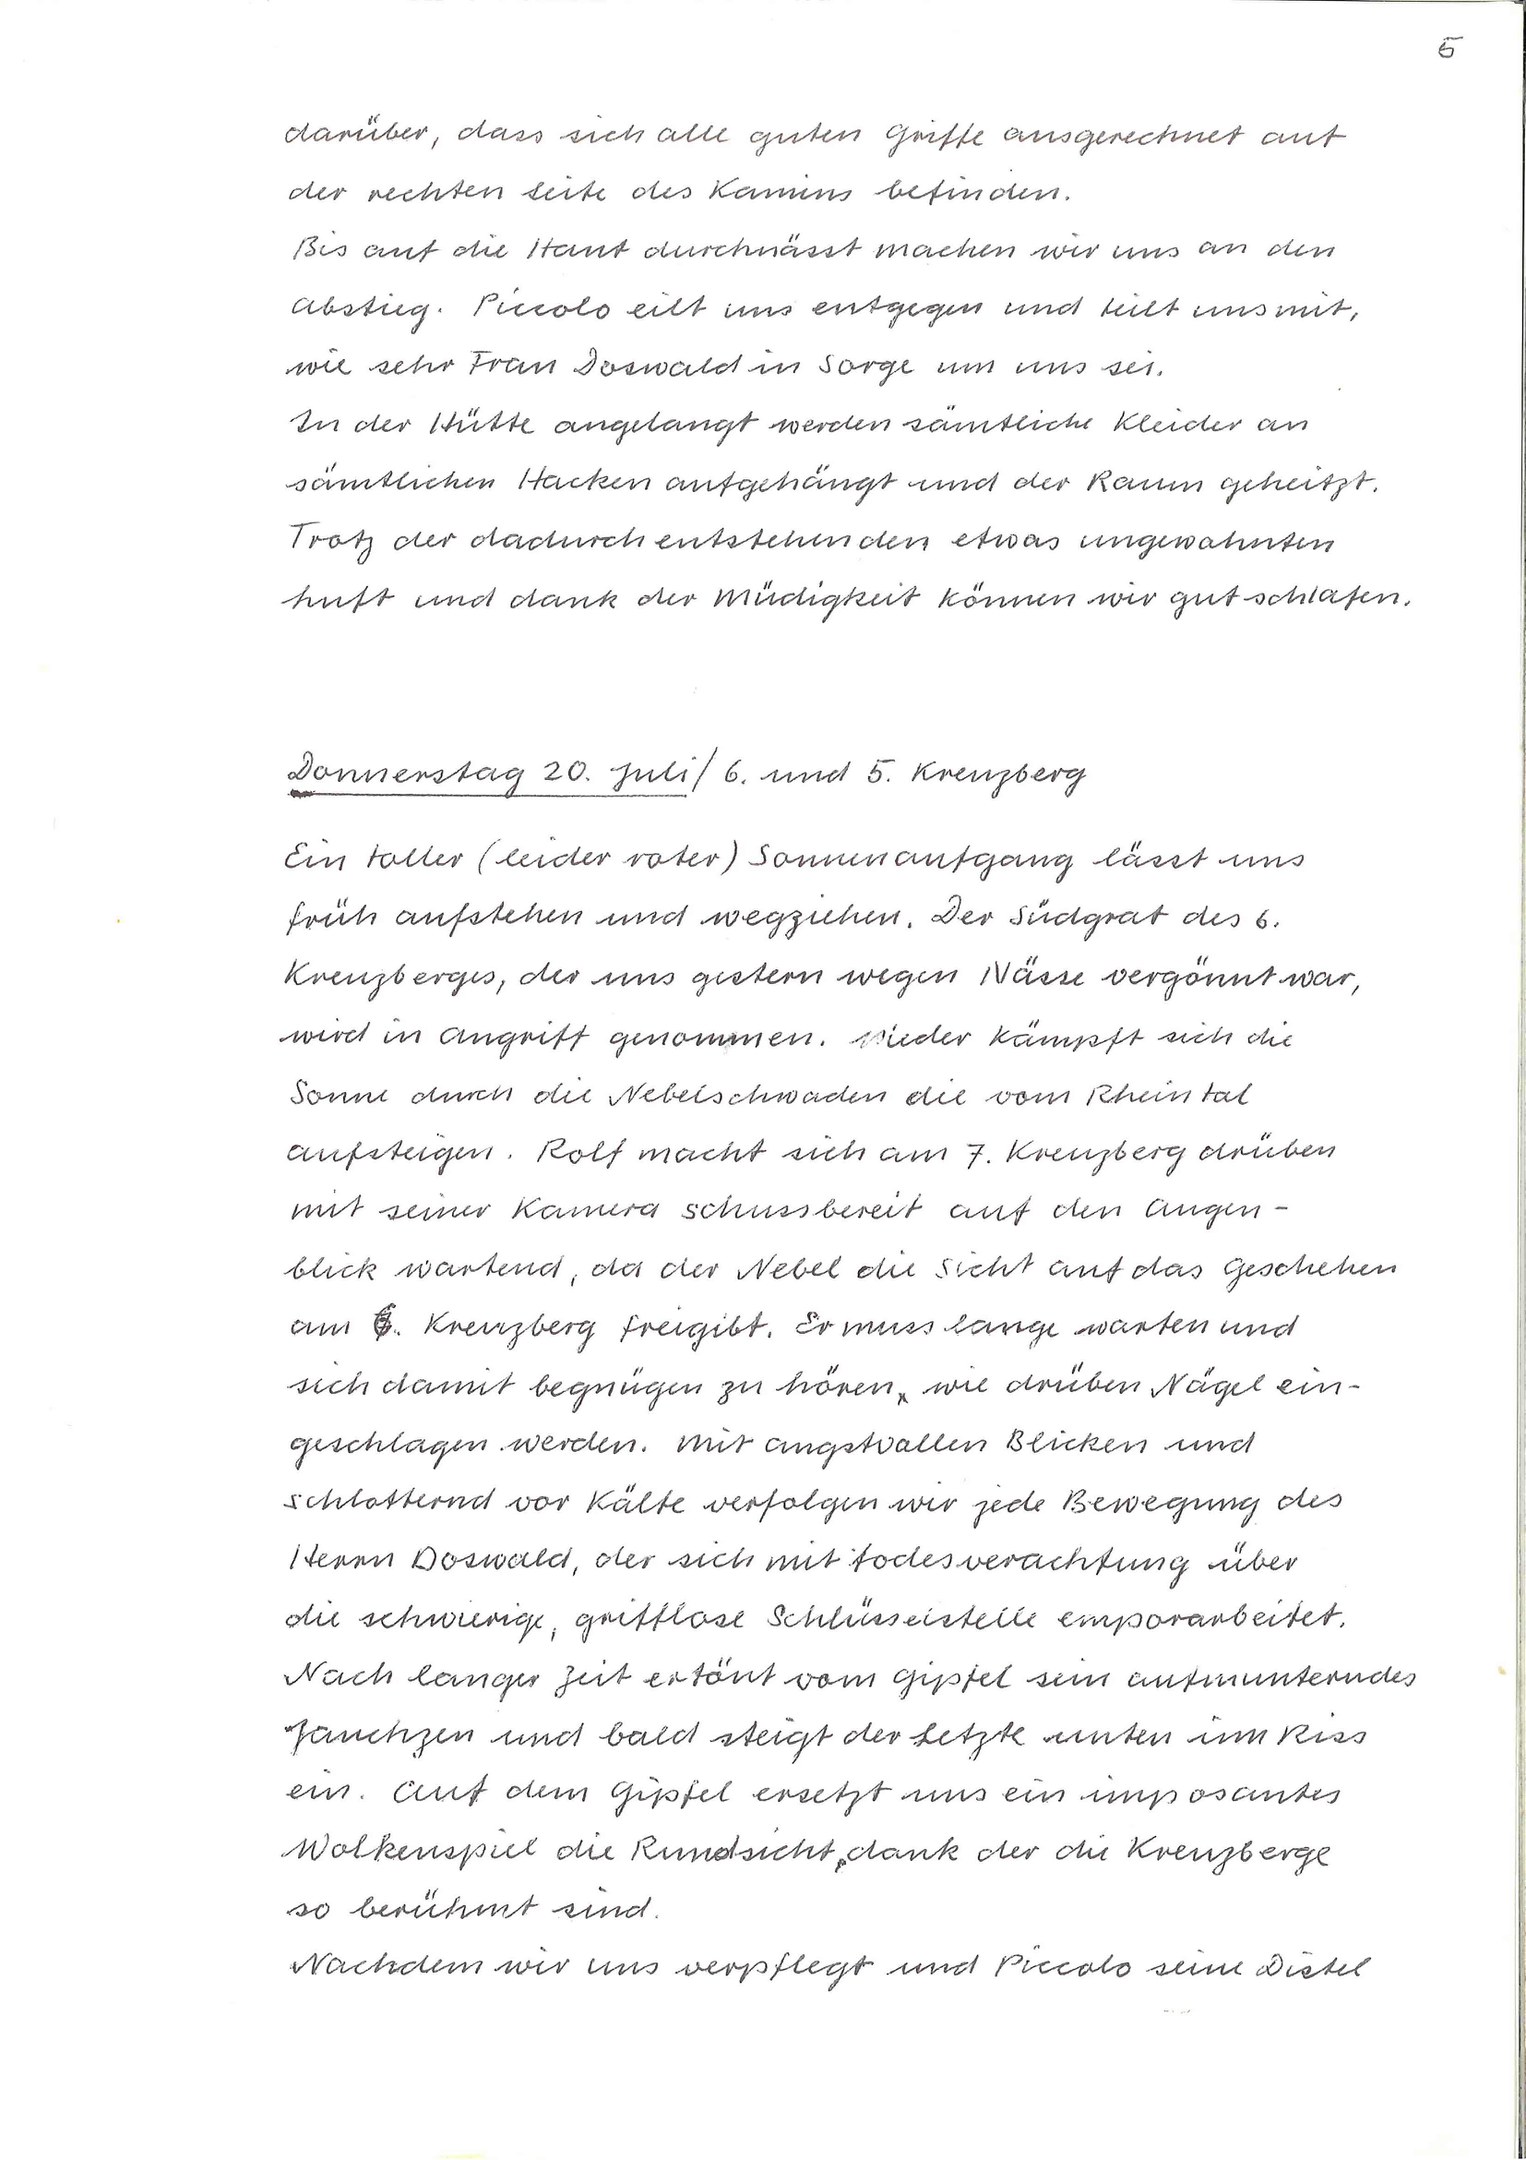 5
darüber, dass sich alle guten Griffe ausgerechnet auf
der rechten Seite des Kamins befinden.
Bis auf die Haut durchnässt machen wir uns an den
Abstieg. Piccolo eilt uns entgegen und teilt uns mit,
wie sehr Frau Doswald in Sorge um uns sei.
In der Hütte angelangt werden sämtliche Kleider an
sämtlichen Hacken aufgehängt und der Raum geheitzt.
Trotz der dadurch entstehenden etwas ungewohnten
Luft und dank der Müdigkeit können wir gut schlafen.
Donnerstag 20. Juli / 6. und 5. Kreuzberg
Ein toller (leider roter) Sonnenaufgang lässt uns
früh aufstehen und wegziehen. Der Südgrat des 6.
Kreuzberges, der uns gestern wegen Nässe vergönnt war,
wird in Angriff genommen. Wieder kämpft sich die
Sonne durch die Nebelschwaden die vom Rheintal
aufsteigen. Rolf macht sich am 7. Kreuzberg drüben
mit seiner Kamera schussbereit auf den Augen-
blick wartend, da der Nebel die Sicht auf das Geschehen
am 6. Kreuzberg freigibt. Er muss lange warten und
sich damit begnügen zu hören, wie drüben Nägel ein-
geschlagen werden. Mit angstvollen Blicken und
schlotternd vor Kälte verfolgen wir jede Bewegung des
Herrn Doswald, der sich mit Todesverachtung über
die schwierige, grifflose Schlüsselstelle emporarbeitet.
Nach langer Zeit ertönt vom Gipfel sein aufmunterndes
Jauchzen und bald steigt der Letzte unten im Riss
ein. Auf dem Gipfel ersetzt uns ein imposantes
Wolkenspiel die Rundsicht, dank der die Kreuzberge
so berühmt sind.
Nachdem wir uns verpflegt und Piccolo seine Distel